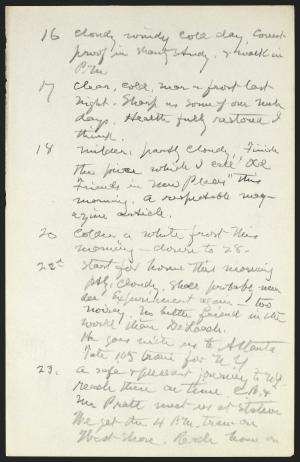 16 Cloudy windy cold day. Correct
proof in Shanty Study, & walk in
P.M.
17 Clear, cold, near a frost last
night. Sharp as some of our March
days. Health fully restored I
think.
18 Milder, partly cloudy. Finish
the piece which I call "Old
Friends in New Places" this
morning. A respectable mag-
azine article.
20 Colder a white frost this
morning — down to 28.
22d Start for home this morning
ptly cloudy. Shall probably never
see Experiment again — too
noisy. No better friend in the
world than De Loach.
He goes with us to Atlanta
Take 105 train for N.Y.
23. A safe & pleasant journey to N.Y.
reach there on time. C.B. &
Mr Pratt meet us at station
We get the 4 P.M. train on
West Shore. Reach home on